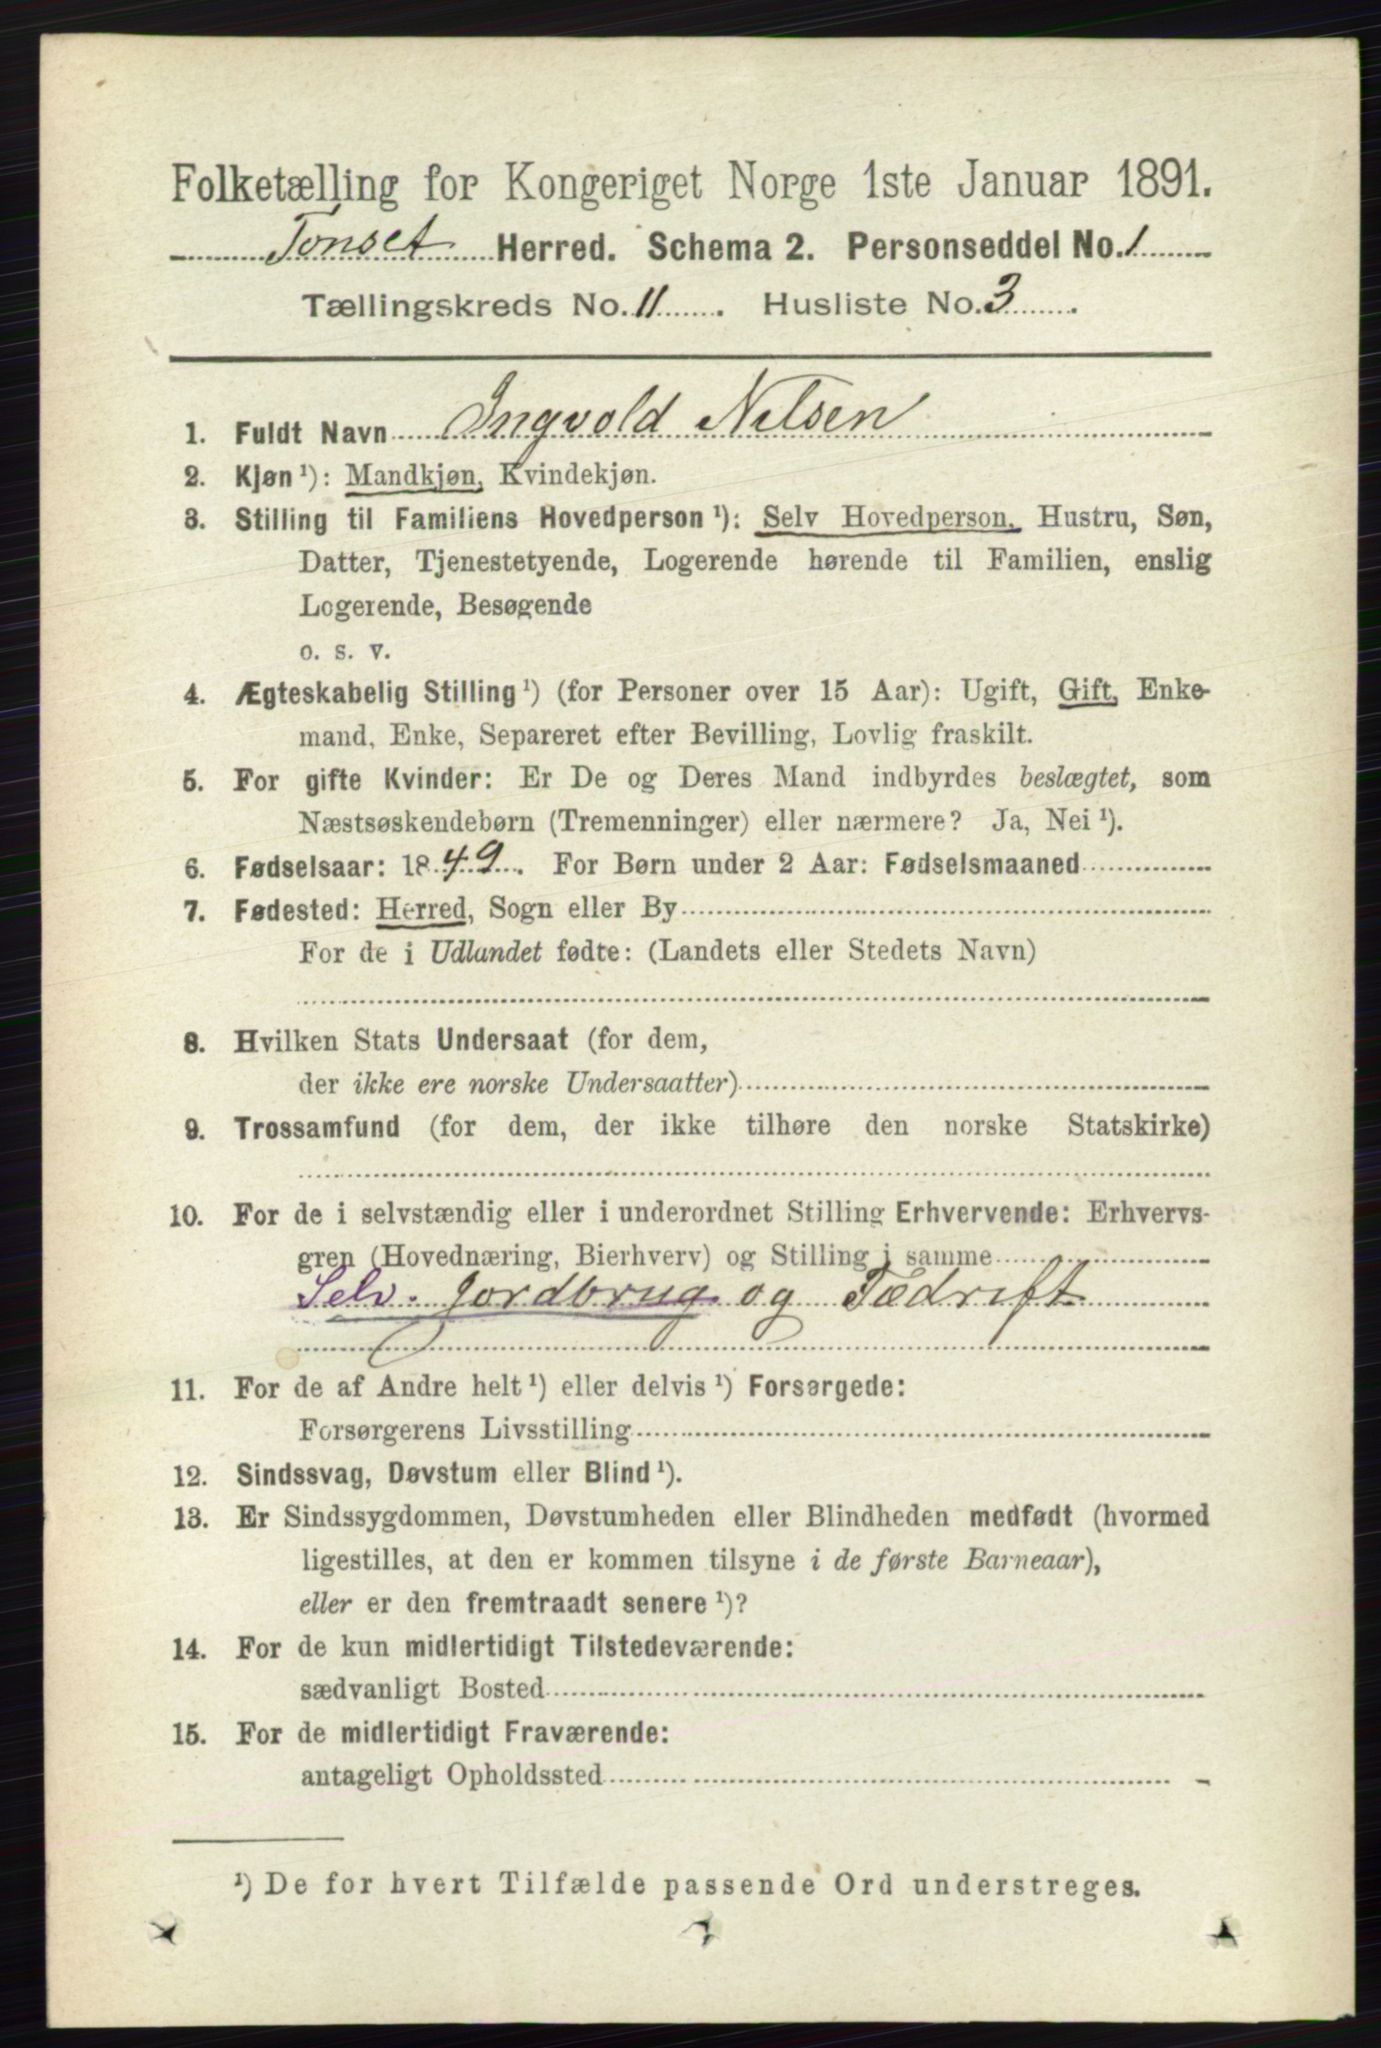 Folketælling for Kongeriget Norge 1ste Januar 1891.
Tonset Herred. Schema 2. Personseddel No. 1
Tællingskreds No. 11. Husliste No. 3.
1. Fuldt Navn Ingvold Nilsen
2. Kjøn ¹): Mandkjøn, Kvindekjøn.
3. Stilling til Familiens Hovedperson ¹): Selv Hovedperson, Hustru, Søn,
Datter, Tjenestetyende, Logerende hørende til Familien, enslig
Logerende, Besøgende
o. s. v.
4. Ægteskabelig Stilling ¹) (for Personer over 15 Aar): Ugift, Gift, Enke-
mand, Enke, Separeret efter Bevilling, Lovlig fraskilt.
5. For gifte Kvinder: Er De og Deres Mand indbyrdes beslægtet, som
Næstsøskendebørn (Tremenninger) eller nærmere? Ja, Nei ¹).
6. Fødselsaar: 1849. For Børn under 2 Aar: Fødselsmaaned
7. Fødested: Herred, Sogn eller By
For de i Udlandet fødte: (Landets eller Stedets Navn)
8. Hvilken Stats Undersaat (for dem,
der ikke ere norske Undersaatter)
9. Trossamfund (for dem, der ikke tilhøre den norske Statskirke)
10. For de i selvstændig eller i underordnet Stilling Erhvervende: Erhvervs-
gren (Hovednæring, Bierhverv) og Stilling i samme
Selv. Jordbrug og Fædrift
11. For de af Andre helt ¹) eller delvis ¹) Forsørgede:
Forsørgerens Livsstilling
12. Sindssvag, Døvstum eller Blind ¹).
13. Er Sindssygdommen, Døvstumheden eller Blindheden medfødt (hvormed
ligestilles, at den er kommen tilsyne i de første Barneaar),
eller er den fremtraadt senere ¹)?
14. For de kun midlertidigt Tilstedeværende:
sædvanligt Bosted
15. For de midlertidigt Fraværende:
antageligt Opholdssted
¹) De for hvert Tilfælde passende Ord understreges.